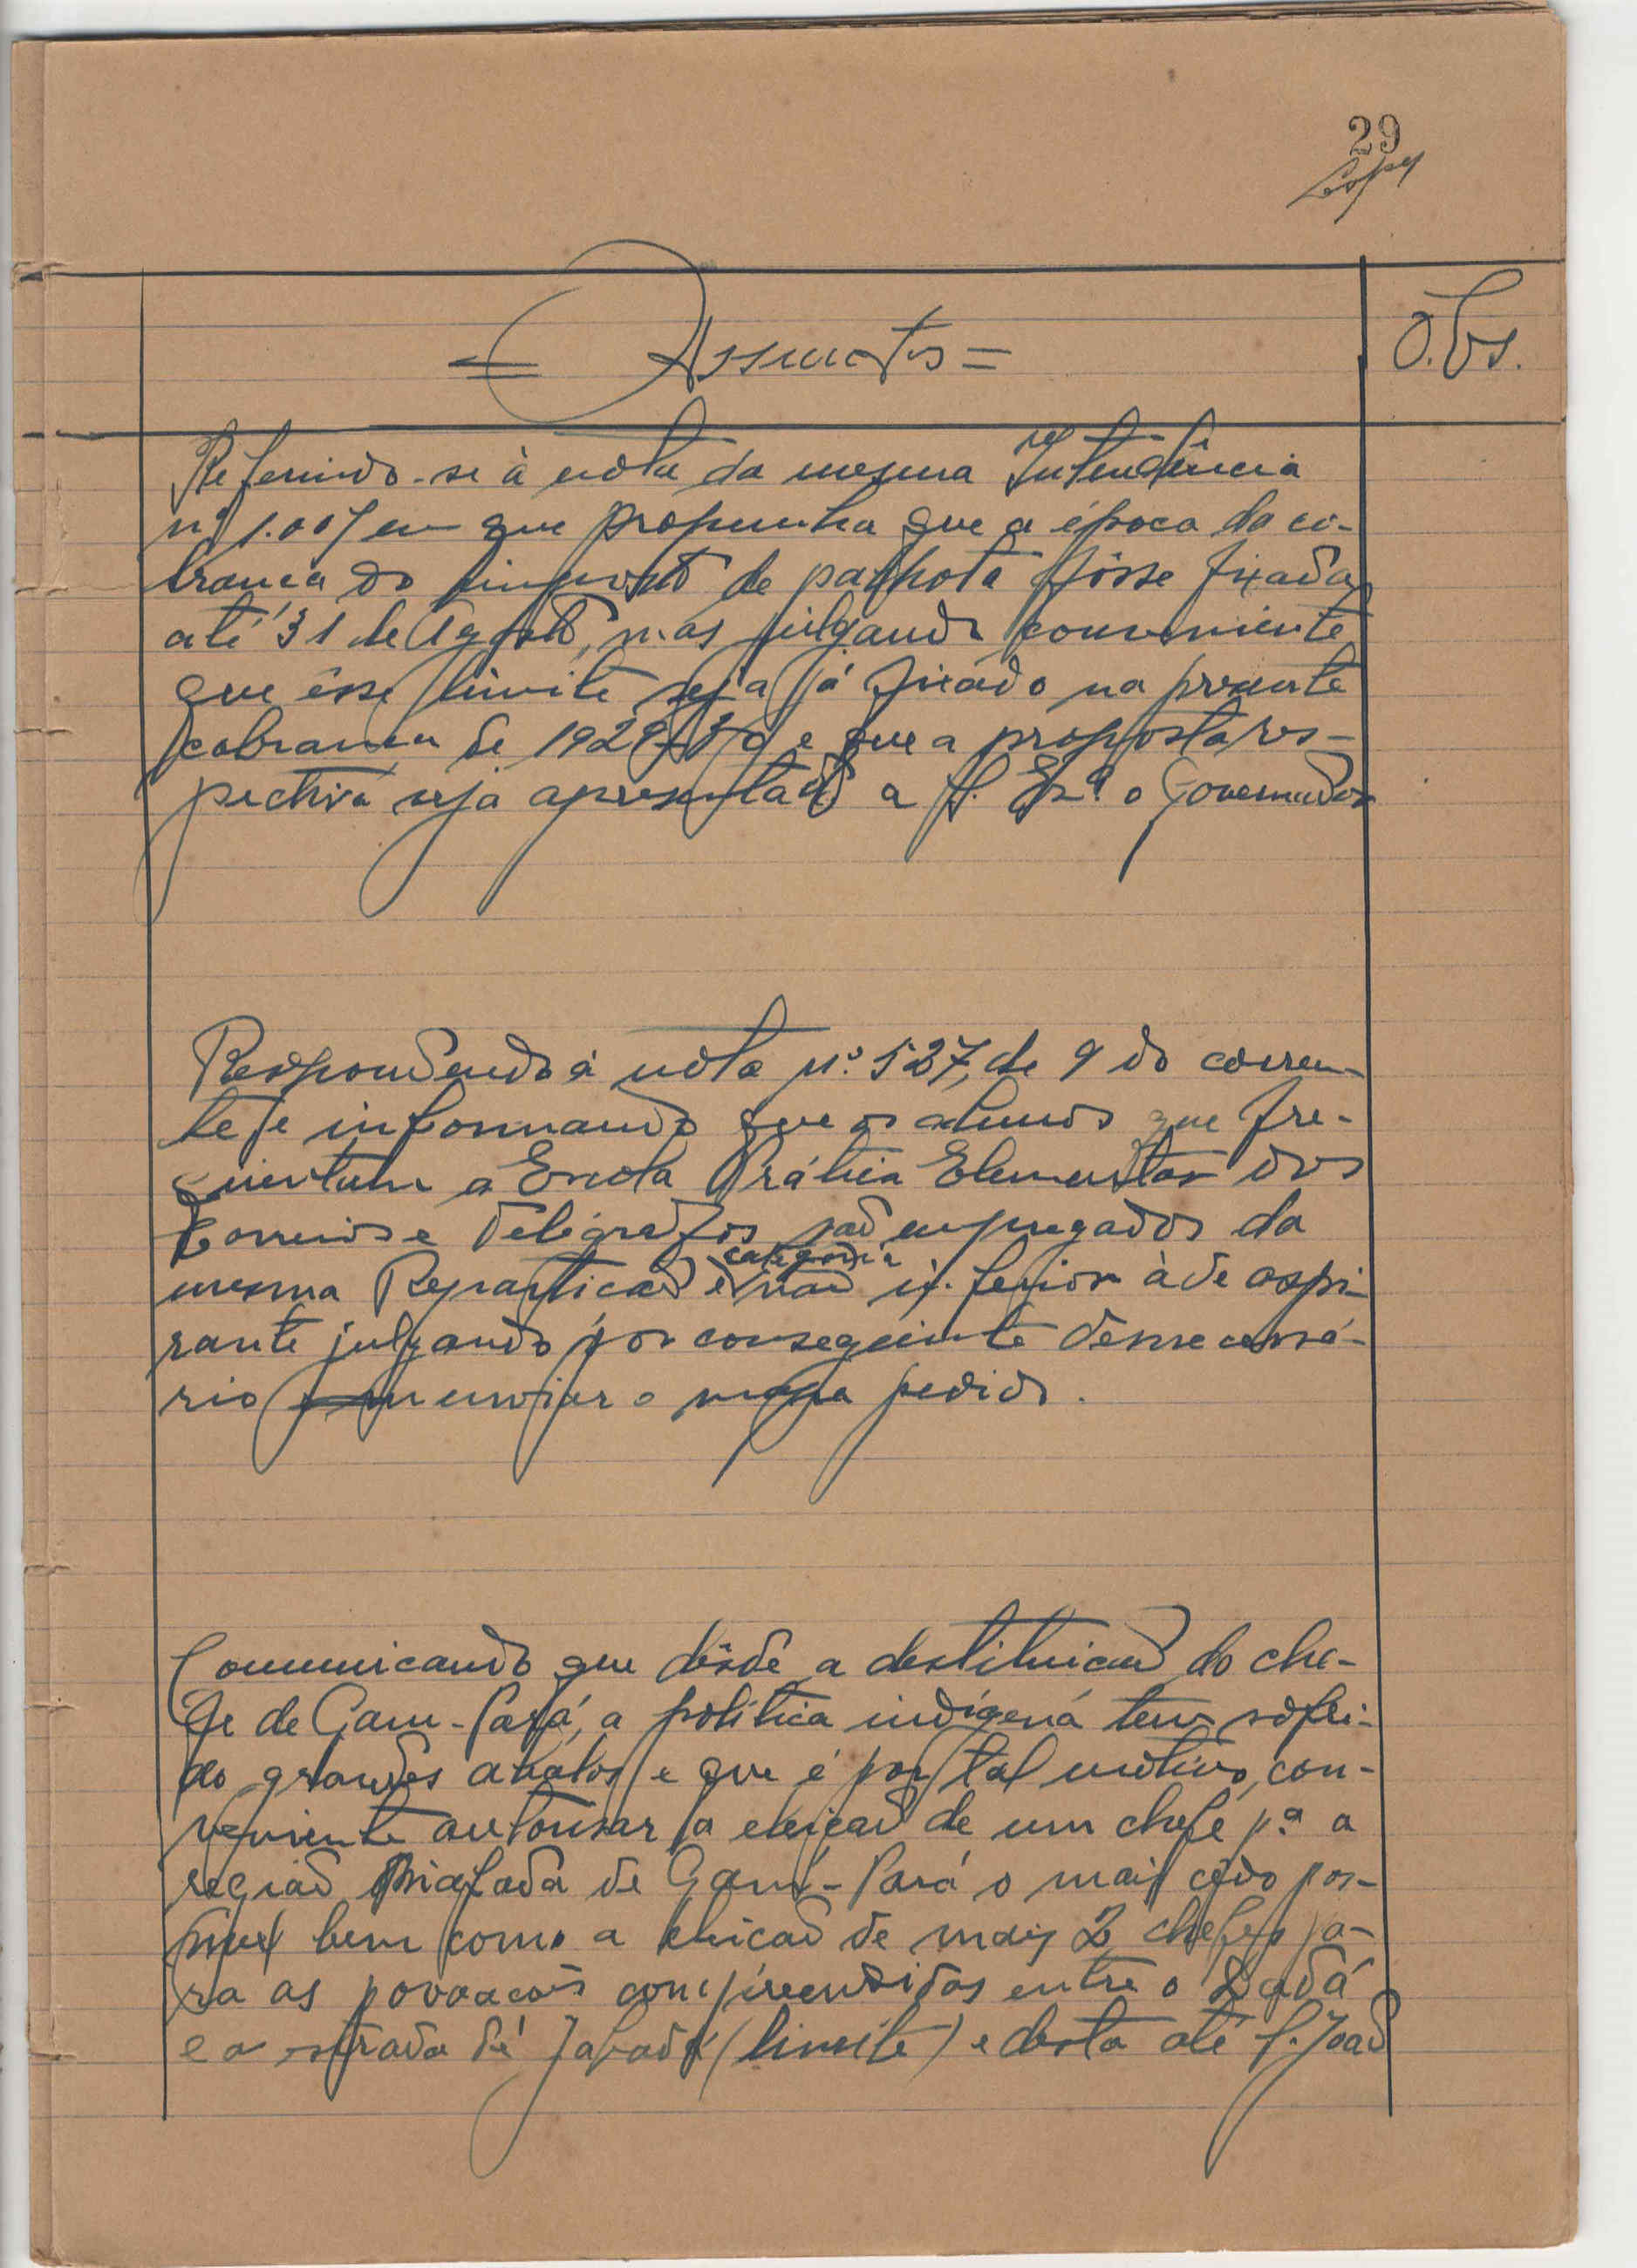 29
Lopes
= Assuntos =
Obs.
Referindo-se à nota da mesma Intendência
nº 1.007 em que propunha que a época da co-
brança do imposto de palhota fôsse fixada
até 31 de Agosto, mas julgando conveniente
que êsse limite seja já fixado na presente
cobrança de 1929-30 e que a proposta res-
pectiva seja apresentada a S. Exª o Governador
Respondendo à nota nº 527, de 9 do corren-
te e informando que os alunos que fre-
quentam a Escola Prática Elementar dos
Correios e Telégrafos são empregados da
categoria
mesma Repartição e não inferior à de aspi-
rante julgando por conseguinte desnecessá-
rio enviar o mapa pedido.
Comunicando que dêsde a destituição do che-
fe de Gam-Pará, a política indígena tem sofri-
do grandes abalos e que é por tal motivo, con-
veniente autorisar a eleição de um chefe pª a
região Biafada de Gam-Pará o mais cêdo pos-
sivel bem como a eleição de mais 2 chefes pa-
ra as povoações compreendidas entre o
e a estrada de Jabadá (limite) e desta até S. João